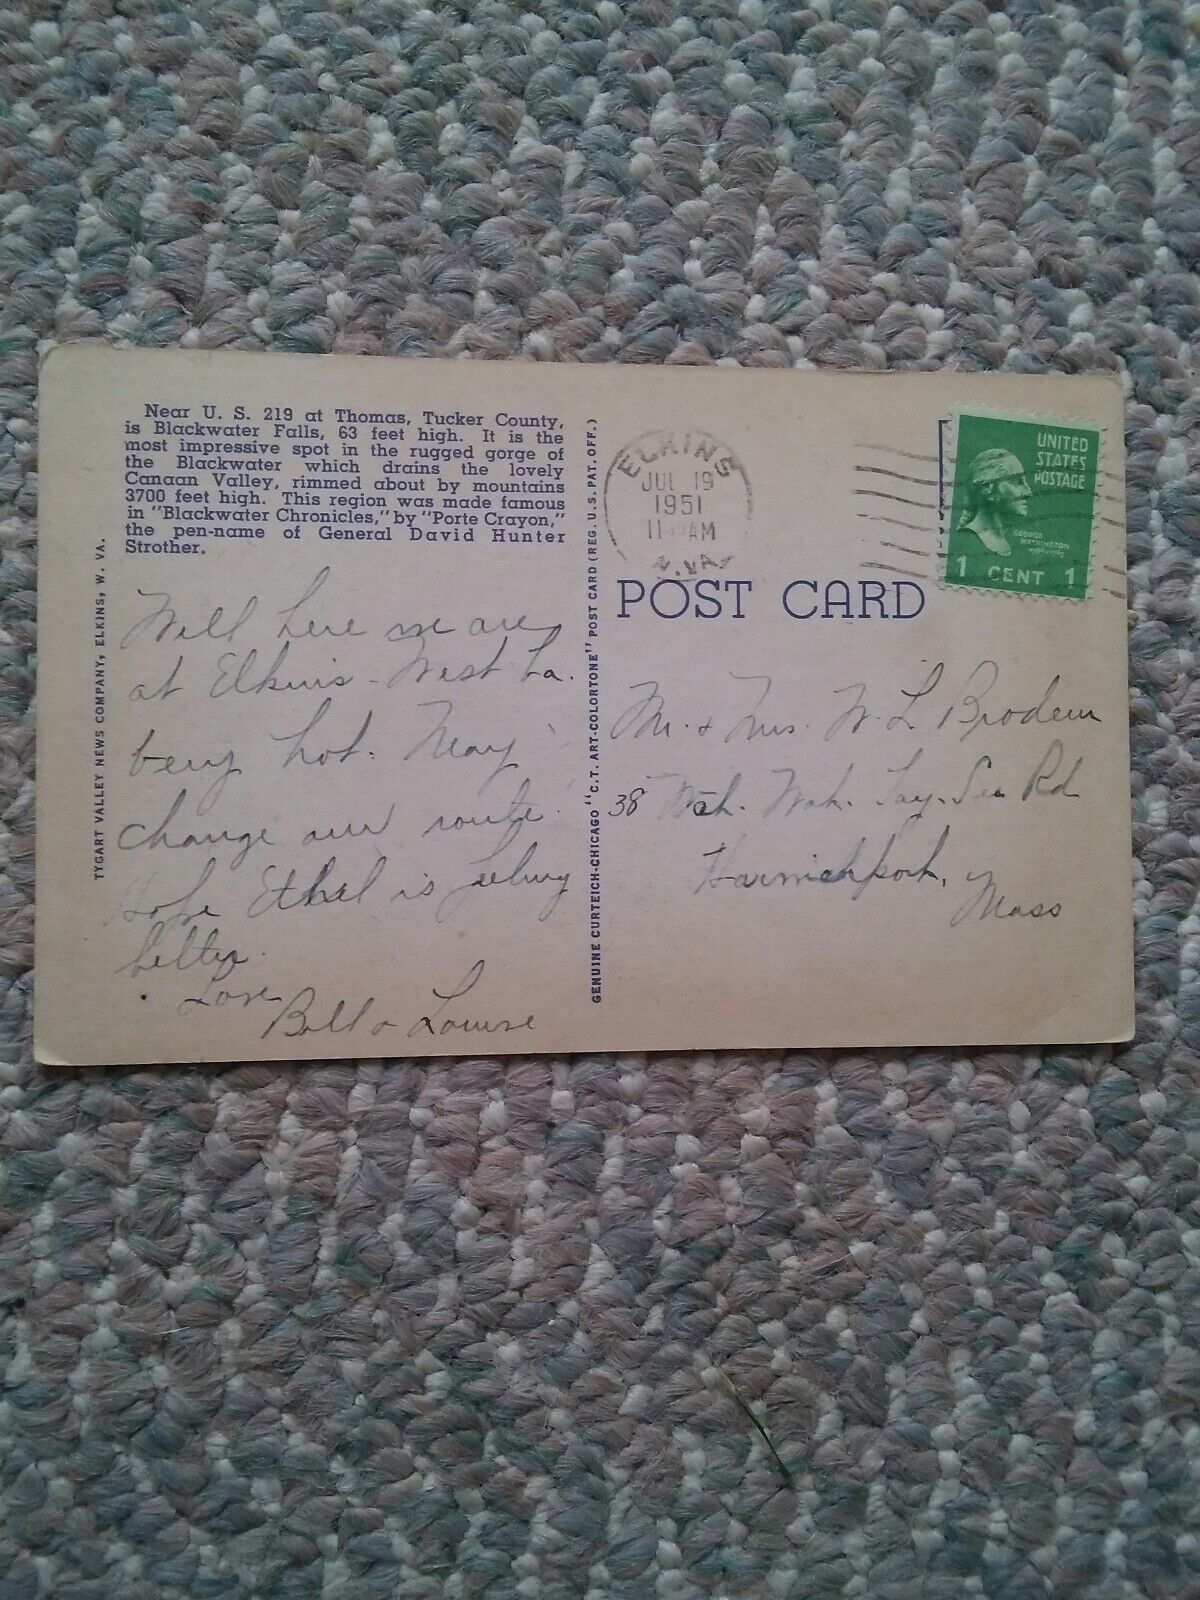 Near U. S. 219 at Thomas, Tucker County,
is Blackwater Falls, 63 feet high. It is the
most impressive spot in the rugged gorge of
the Blackwater which drains the lovely
Canaan Valley, rimmed about by mountains
3700 feet high. This region was made famous
in "Blackwater Chronicles," by "Porte Crayon,"
the pen-name of General David Hunter
Strother.
TYGART VALLEY NEWS COMPANY, ELKINS, W. VA.
Well here we are
at Elkins - West Va.
very hot. May
change our route.
Hope Ethel is feeling
better.
Love
Bill & Louise
GENUINE CURTEICH-CHICAGO "C.T. ART-COLORTONE" POST CARD (REG. U.S. PAT. OFF.)
ELKINS
JUL 19
1951
AM
W.VA.
UNITED
STATES
POSTAGE
GEORGE
WASHINGTON
1 CENT 1
POST CARD
Mr. & Mrs. W. L Brodeur
38 Wah. Wah. Tay. See Rd
Harwichport,
Mass